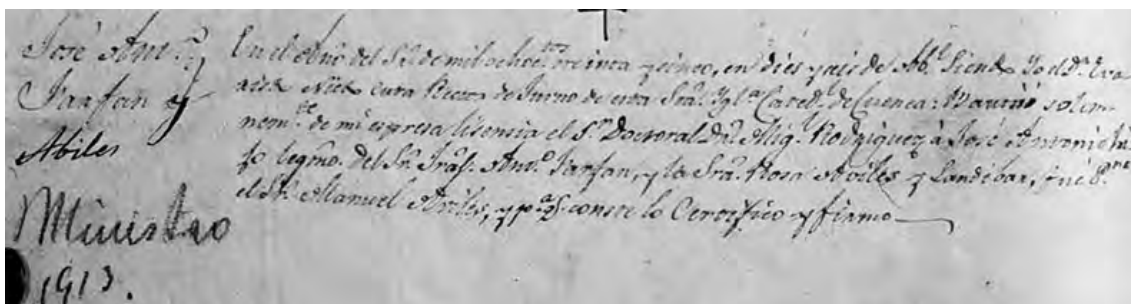 José Ant.º
Farfan y
Abiles
Ministro
1913.
En el Año del Sr. de mil ochoc.tos treinta y cinco, en dies y seis de Ab.l Siendo Yo el D.r Eva
cura Rector de turno de esta Sta. Ygl.a Cated.l de Cuenca: Bautisó solem-
nem.te de mi espresa lisencia el S.r Doctoral D.r Mig.l Rodriguez à José Antonio hi-
jo legmo. del Sr. Ant.º Farfan, y la Sra. Rosa Aviles y Landibar, fué P.no
el Sr. Manuel Aviles, y p.a q.e conste lo Certifico y firmo